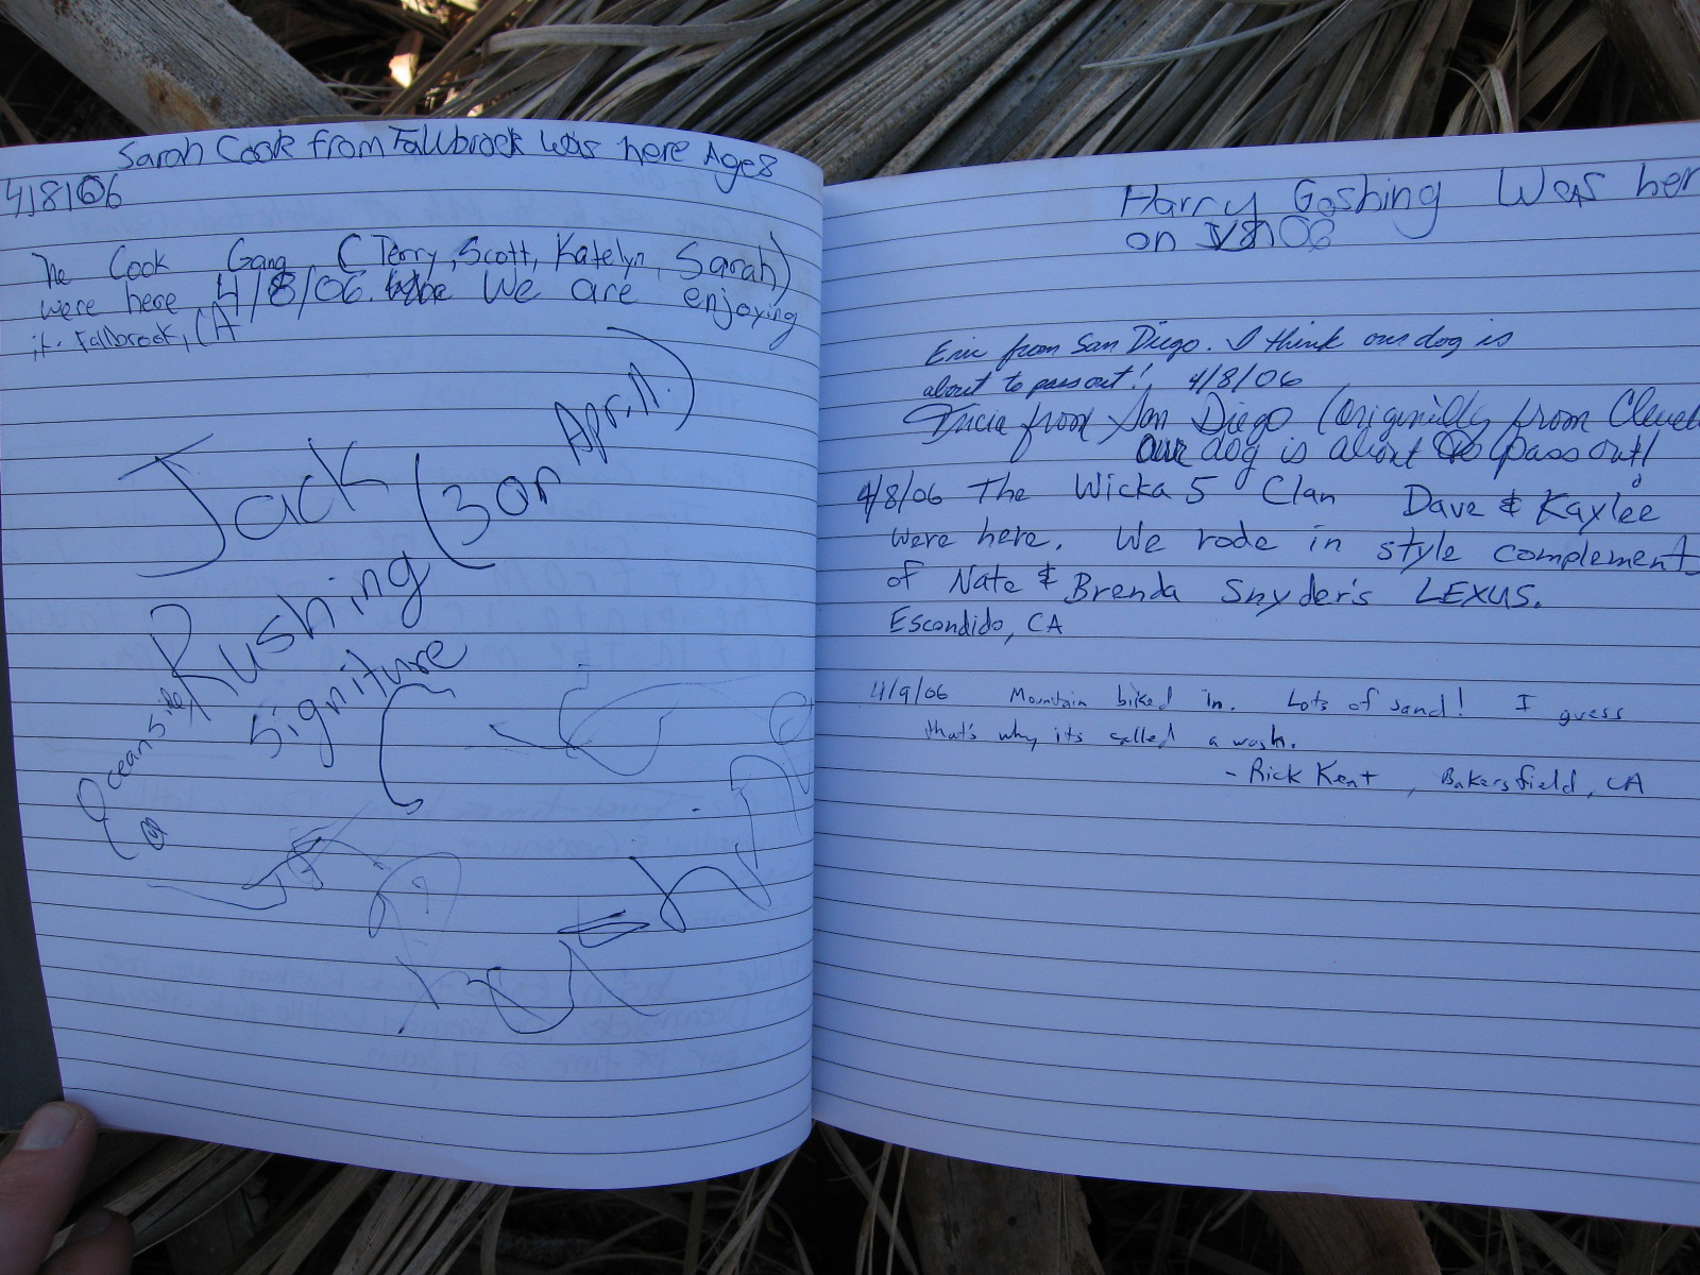 Sarah Cook from Fallbrook was here Age 8
4/8/06
The Cook Gang (Terry, Scott, Katelyn, Sarah)
were here 4/8/06. We are enjoying
it. Fallbrook, CA
Jack (3 on April 11)
Rushing
signiture
Oceanside
Ca
Harry Goshing Was her
on 06
Eric from San Diego. I think our dog is
about to pass out! 4/8/06
Tricia from San Diego (originally from Clevel
our dog is about to pass out!
4/8/06 The Wicka 5 Clan Dave & Kaylee
were here. We rode in style complement
of Nate & Brenda Snyder's LEXUS.
Escondido, CA
4/9/06 Mountain biked in. Lots of sand! I guess
that's why its called a wash.
- Rick Kent, Bakersfield, CA